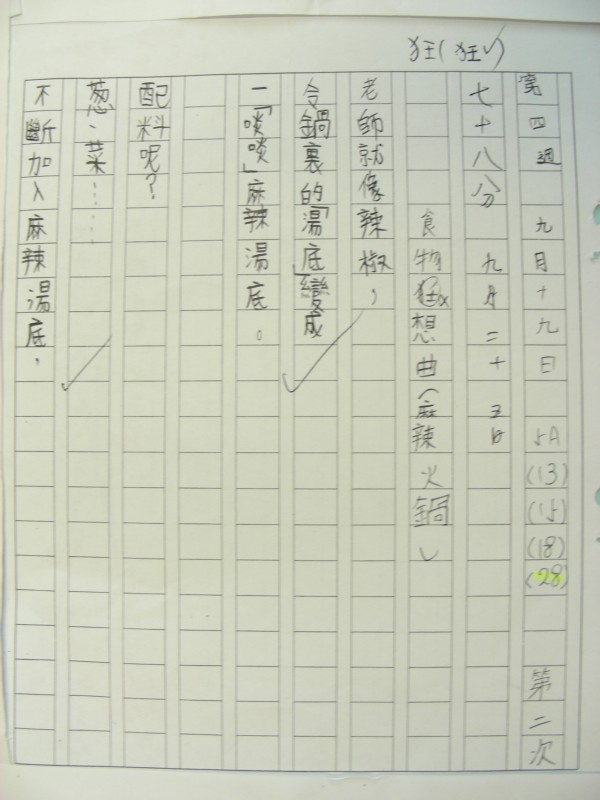 狂(狂✓)
第四週 九月十九日 5A (13) (15) (18) (28) 第二次
七十八分 九月二十五日
食物狂想曲(麻辣火鍋)
老師就像辣椒，
令鍋裏的「湯底」變成
一「啖啖」麻辣湯底。
配料呢？
葱、菜……
不斷加入麻辣湯底，